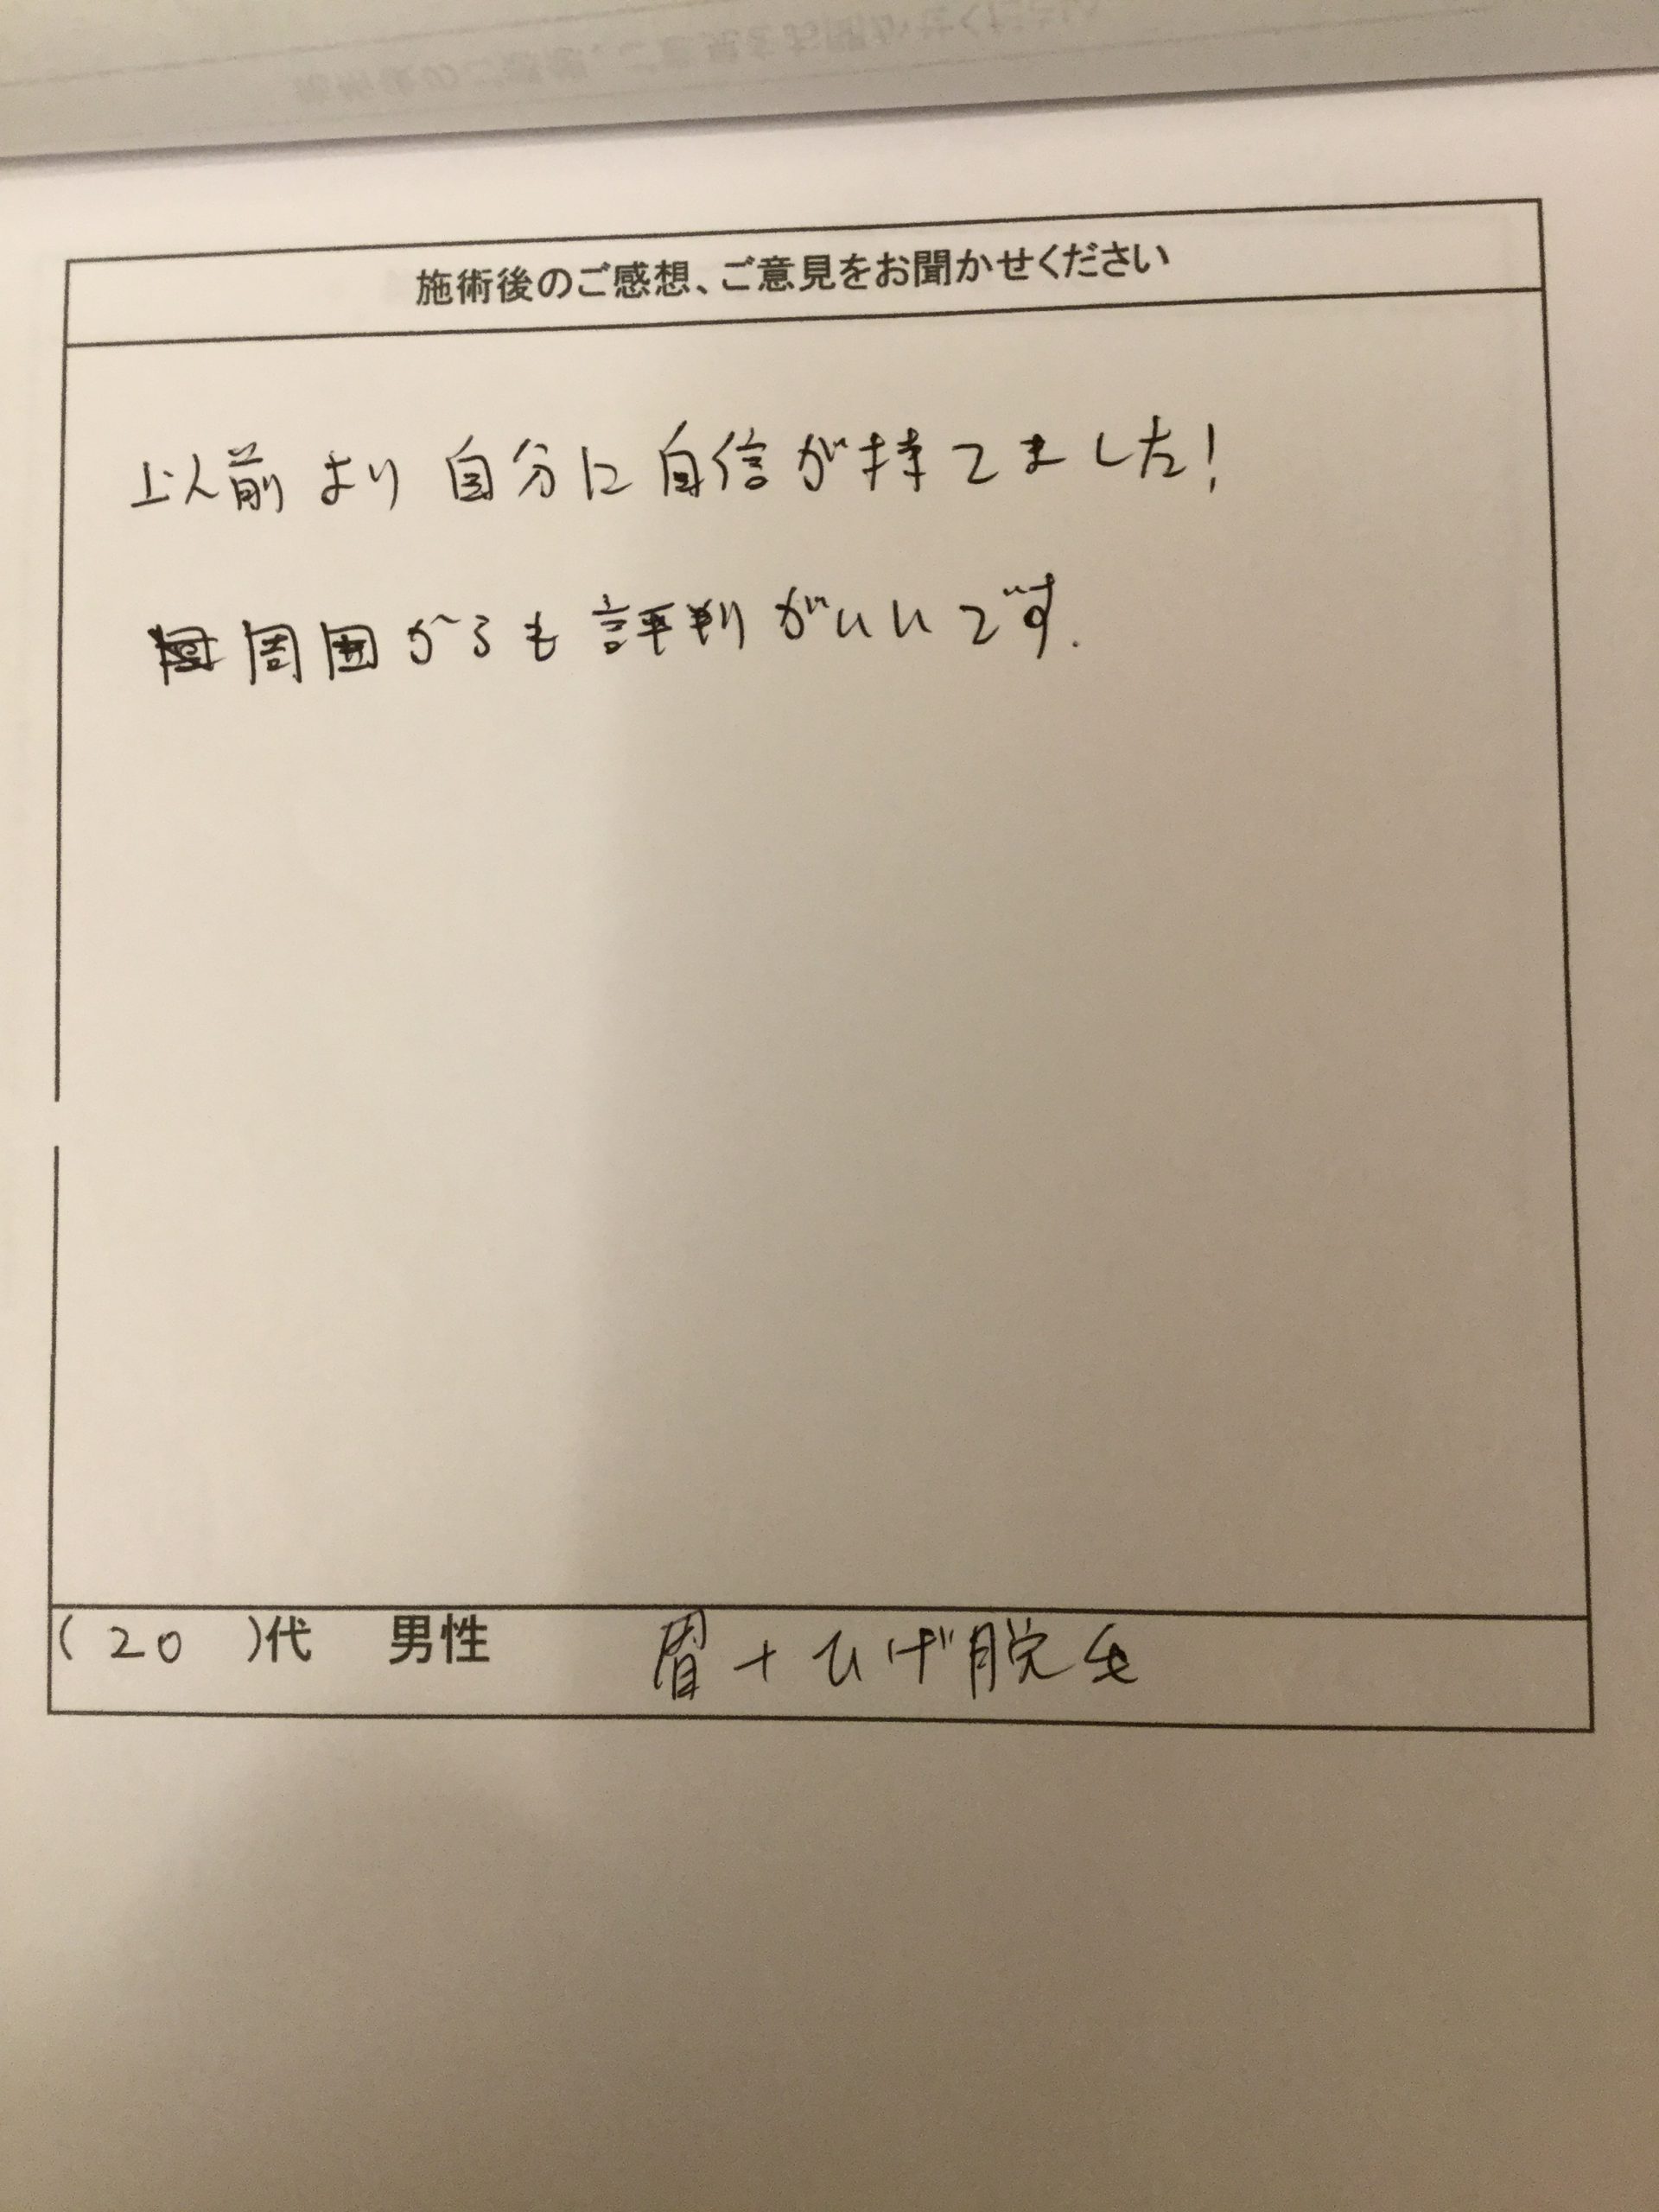 施術後のご感想、ご意見をお聞かせください
以前より自分に自信が持てました!
周囲からも評判がいいです.
( 20 )代 男性 眉+ひげ脱毛